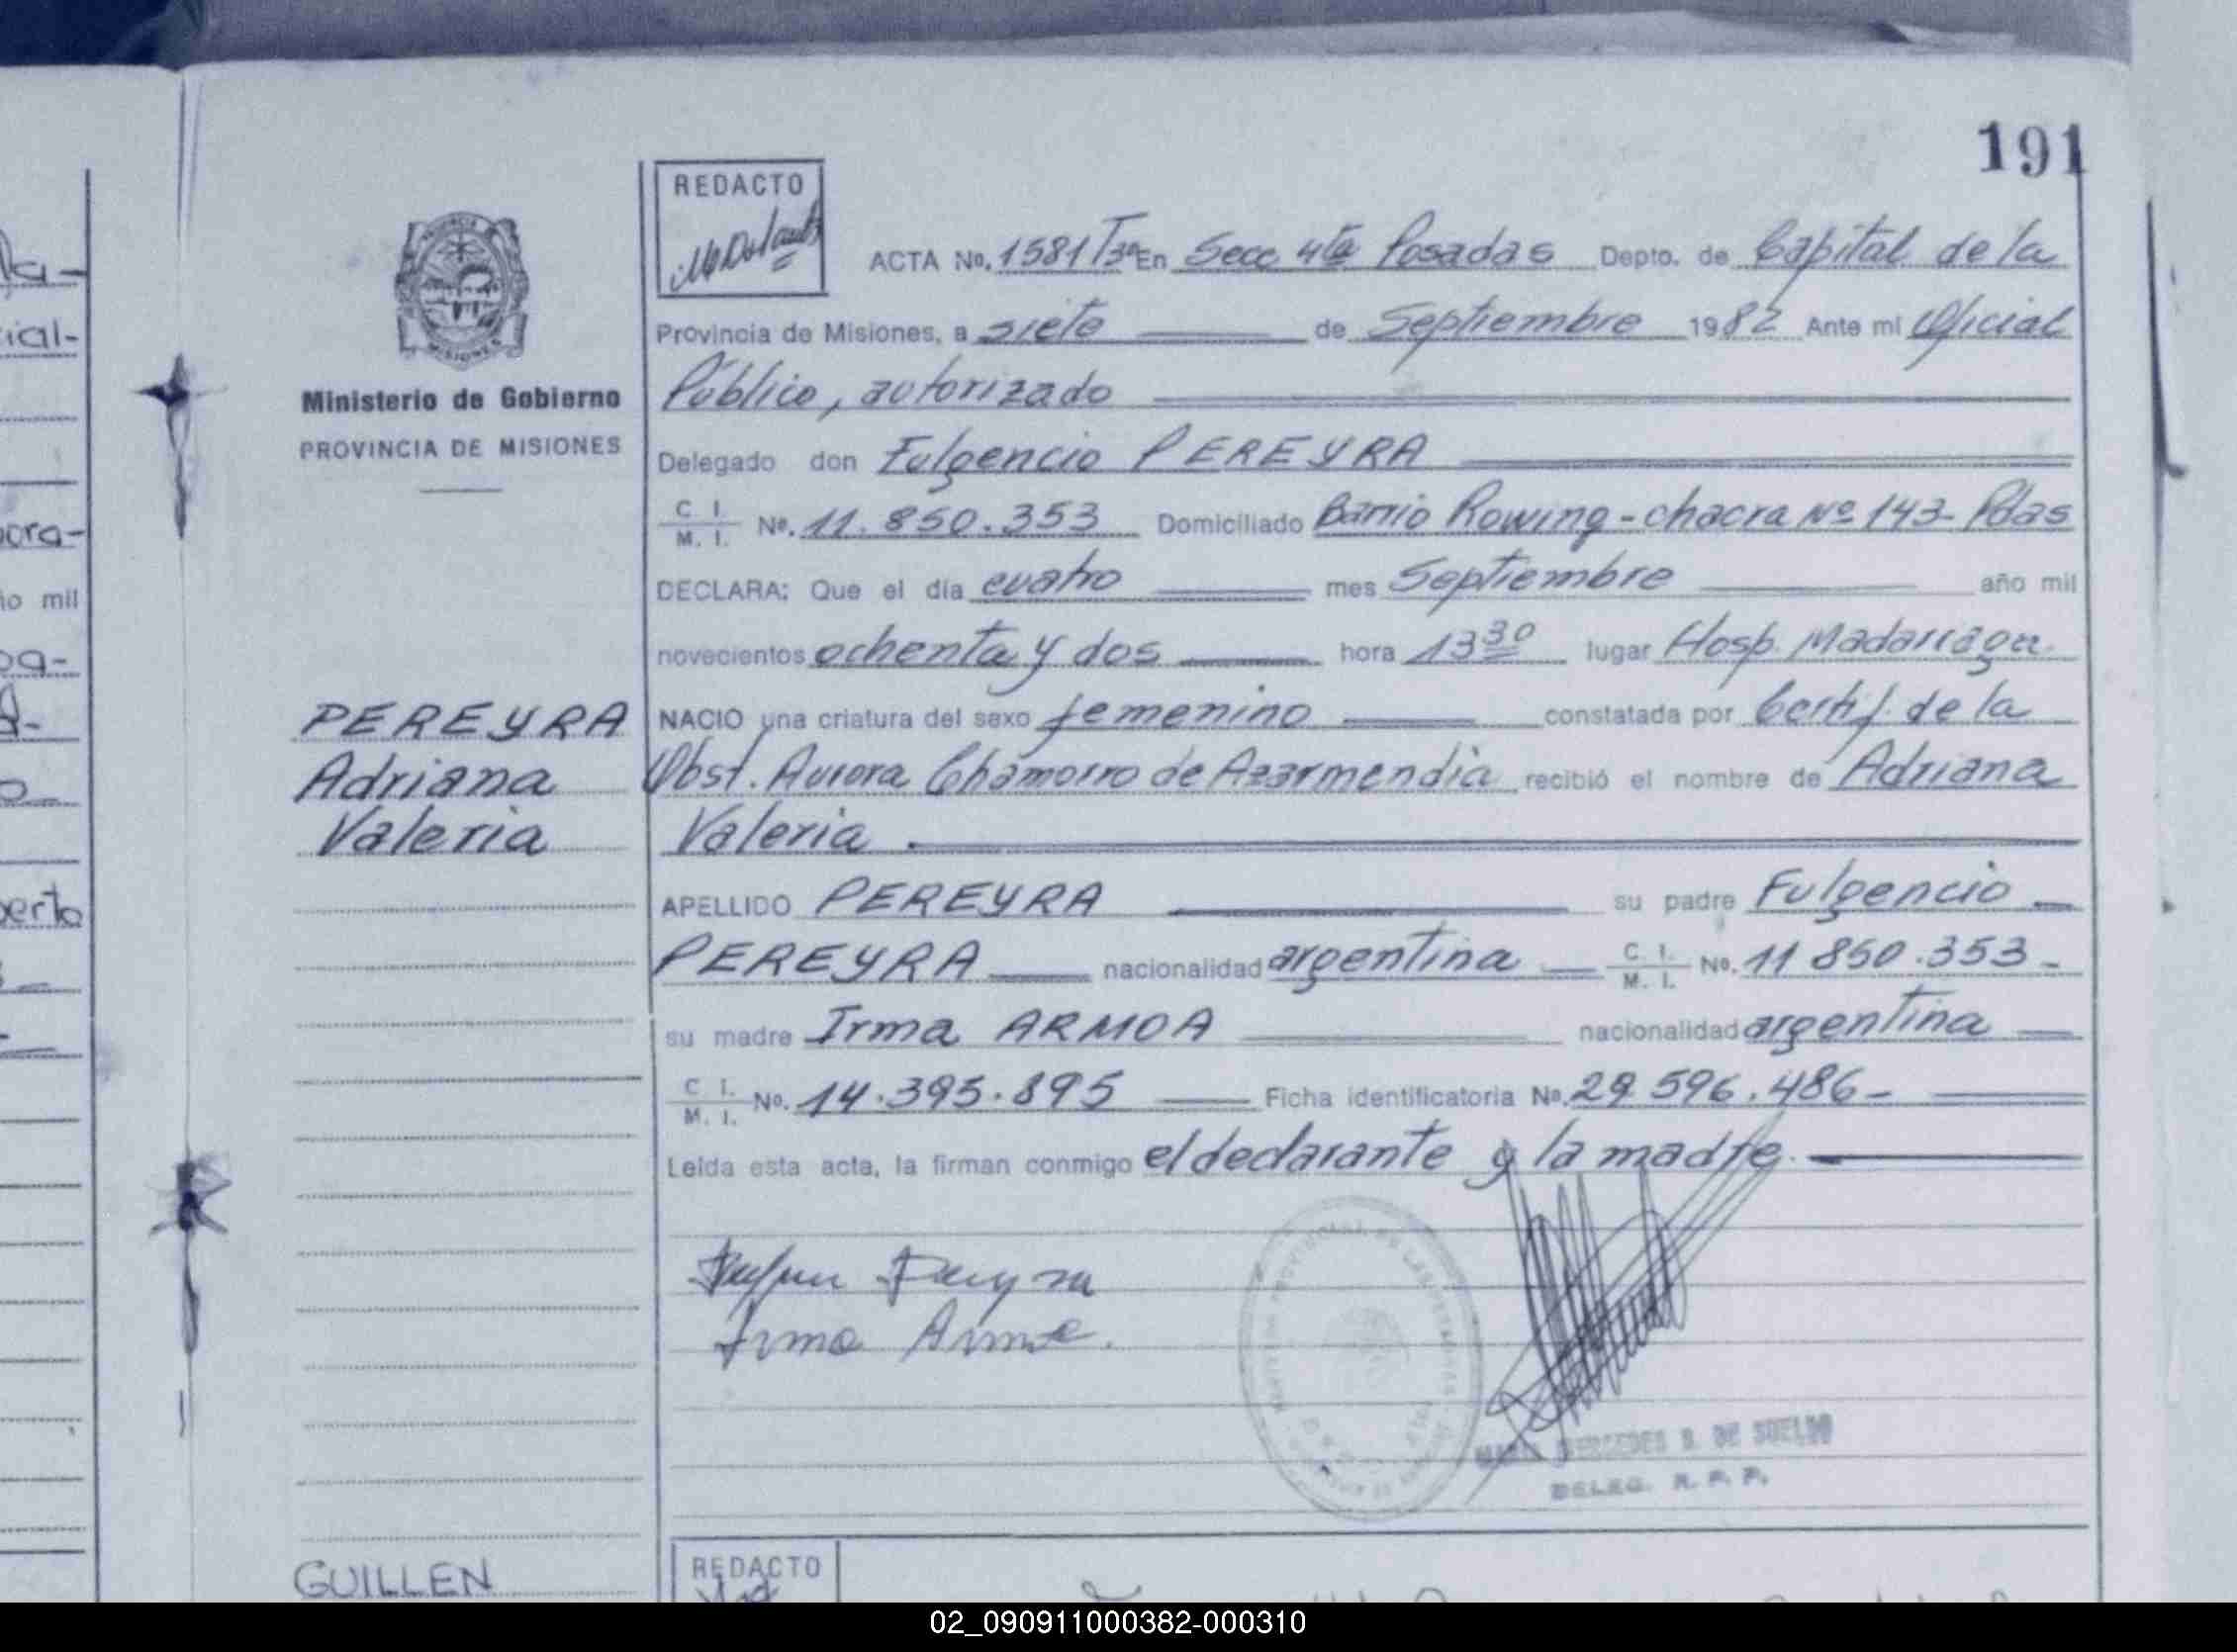 191
REDACTO
ACTA No. 1581 Tº 3º En Secc 4ta Posadas Depto. de Capital de la
Provincia de Misiones, a siete de Septiembre 1982 Ante mi Oficial
Ministerio de Gobierno
PROVINCIA DE MISIONES
Público, autorizado
Delegado don Fulgencio PEREYRA
C. I.
M. I. No. 11.850.353 Domiciliado Barrio Rowing - chacra Nº 143 - Pdas
DECLARA: Que el día cuatro mes Septiembre año mil
novecientos ochenta y dos hora 13 30 lugar Hosp. Madarriaga
PEREYRA
Adriana
Valeria
NACIO una criatura del sexo femenino constatada por Certif. de la
Obst. Aurora Chamorro de Azarmendia recibió el nombre de Adriana
Valeria
APELLIDO PEREYRA su padre Fulgencio
PEREYRA nacionalidad argentina C. I. M. I. No. 11 850.353 -
su madre Irma ARMOA nacionalidad argentina
C. I.
M. I. No. 14.395.895 Ficha identificatoria No. 29 596.486 -
Leída esta acta, la firman conmigo el declarante y la madre.
Irma
MERCEDES DE
DELEG. R. P. P.
GUILLEN
REDACTO
ial-
ora-
io mil
erto
02_090911000382-000310